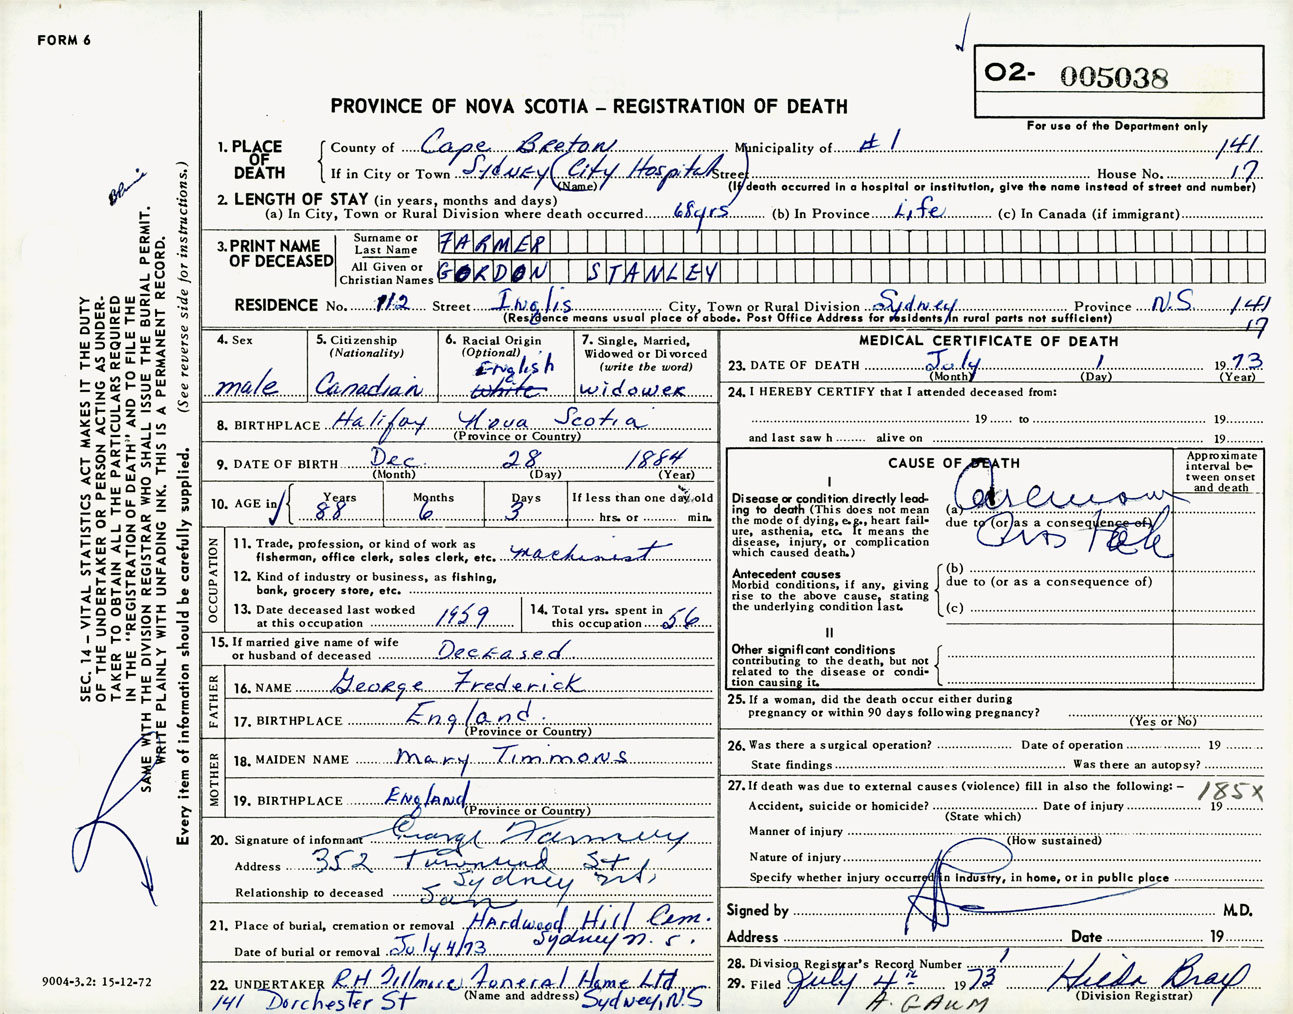 FORM 6
O2- 005038
For use of the Department only
PROVINCE OF NOVA SCOTIA – REGISTRATION OF DEATH
1. PLACE OF DEATH
County of Cape Breton Municipality of #1 141
If in City or Town Sydney (City Hospital) Street House No. 17
(Name) (If death occurred in a hospital or institution, give the name instead of street and number)
2. LENGTH OF STAY (in years, months and days)
(a) In City, Town or Rural Division where death occurred 68 yrs (b) In Province Life (c) In Canada (if immigrant)
3. PRINT NAME OF DECEASED
Surname or Last Name FARMER
All Given or Christian Names GORDON STANLEY
RESIDENCE No. 112 Street Inglis City, Town or Rural Division Sydney Province N.S. 141
(Residence means usual place of abode. Post Office Address for residents in rural parts not sufficient) 17
4. Sex
male
5. Citizenship
(Nationality)
Canadian
6. Racial Origin
(Optional)
English
White
7. Single, Married,
Widowed or Divorced
(write the word)
widower
8. BIRTHPLACE Halifax Nova Scotia
(Province or Country)
9. DATE OF BIRTH Dec. 28 1884
(Month) (Day) (Year)
10. AGE in Years Months Days If less than one day old
88 6 3 hrs. or min.
OCCUPATION
11. Trade, profession, or kind of work as
fisherman, office clerk, sales clerk, etc. machinist
12. Kind of industry or business, as fishing,
bank, grocery store, etc.
13. Date deceased last worked
at this occupation 1959
14. Total yrs. spent in
this occupation 56
15. If married give name of wife
or husband of deceased Deceased
FATHER
16. NAME George Frederick
17. BIRTHPLACE England.
(Province or Country)
MOTHER
18. MAIDEN NAME Mary Timmons
19. BIRTHPLACE England
(Province or Country)
20. Signature of informant George Farmer
Address 352 Townsend St
Sydney N.S.
Relationship to deceased Son
21. Place of burial, cremation or removal Hardwood Hill Cem.
Sydney N.S.
Date of burial or removal July 4/73
22. UNDERTAKER R.H Fillmore Funeral Home Ltd.
(Name and address)
141 Dorchester St Sydney, N.S
MEDICAL CERTIFICATE OF DEATH
23. DATE OF DEATH July 1 1973
(Month) (Day) (Year)
24. I HEREBY CERTIFY that I attended deceased from:
19 to 19
and last saw h alive on 19
CAUSE OF DEATH
Approximate interval between onset and death
I
Disease or condition directly leading to death (This does not mean the mode of dying, e.g., heart failure, asthenia, etc. It means the disease, injury, or complication which caused death.)
(a) Carcinoma
due to (or as a consequence of)
Prostate
Antecedent causes
Morbid conditions, if any, giving rise to the above cause, stating the underlying condition last.
(b)
due to (or as a consequence of)
(c)
II
Other significant conditions
contributing to the death, but not related to the disease or condition causing it.
25. If a woman, did the death occur either during
pregnancy or within 90 days following pregnancy?
(Yes or No)
26. Was there a surgical operation? Date of operation 19
State findings Was there an autopsy?
27. If death was due to external causes (violence) fill in also the following: – 185X
Accident, suicide or homicide? Date of injury 19
(State which)
Manner of injury
(How sustained)
Nature of injury
Specify whether injury occurred in industry, in home, or in public place
Signed by M.D.
Address Date 19
28. Division Registrar's Record Number 1
29. Filed July 4th 1973 Hilda Bray
(Division Registrar)
A. GAUM
SEC. 14 – VITAL STATISTICS ACT MAKES IT THE DUTY
OF THE UNDERTAKER OR PERSON ACTING AS UNDERTAKER
TO OBTAIN ALL THE PARTICULARS REQUIRED
IN THE "REGISTRATION OF DEATH" AND TO FILE THE
SAME WITH THE DIVISION REGISTRAR WHO SHALL ISSUE THE BURIAL PERMIT.
WRITE PLAINLY WITH UNFADING INK. THIS IS A PERMANENT RECORD.
Every item of information should be carefully supplied. (See reverse side for instructions.)
9004-3.2: 15-12-72